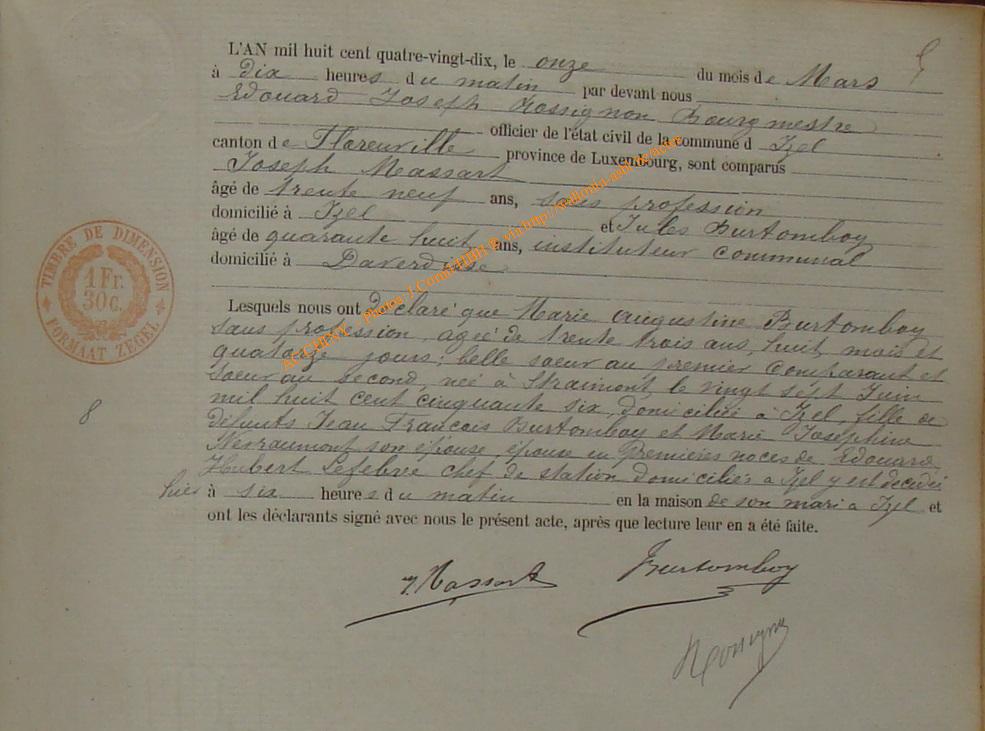 L'AN mil huit cent quatre-vingt-dix, le onze du mois de Mars
à dix heures du matin par devant nous
Edouard Joseph Rossignon Bourgmestre
officier de l'état civil de la commune d Izel
canton de Florenville province de Luxembourg, sont comparus
Joseph Massart
âgé de trente neuf ans, sans profession
domicilié à Izel et Jules Burtomboy
âgé de quarante huit ans, instituteur communal
domicilié à Daverdisse
Lesquels nous ont déclaré que Marie Augustine Burtomboy
sans profession, agée de trente trois ans, huit mois et
quatorze jours, belle soeur au premier comparant et
soeur au second, née à Straimont le vingt sept Juin
mil huit cent cinquante six, domiciliée à Izel, fille de
défunts Jean François Burtomboy et Marie Josephine
Nevraumont son épouse, épouse en premières noces de Edouard
Hubert Lefebvre chef de station domiciliés à Izel y est décédée
hier à six heures du matin en la maison de son mari à Izel et
ont les déclarants signé avec nous le présent acte, après que lecture leur en a été faite.
J. Massart Burtomboy
Rossignon
TIMBRE DE DIMENSION
1 Fr.
30 C.
FORMAAT ZEGEL
8